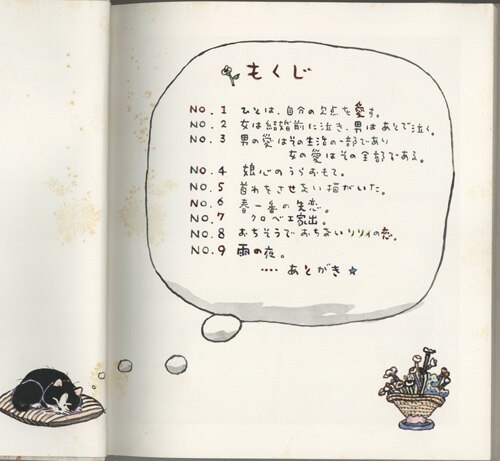 もくじ
NO. 1 ひとは、自分の欠点を愛す。
NO. 2 女は結婚前に泣き、男はあとで泣く。
NO. 3 男の愛はその生活の一部であり
女の愛はその全部である。
NO. 4 娘心のうらおもて。
NO. 5 首わをさせない猫がいた。
NO. 6 春一番の失恋。
NO. 7 クロベエ家出。
NO. 8 おちそうでおちないリリィの恋。
NO. 9 雨の夜。
‥‥ あとがき ☆